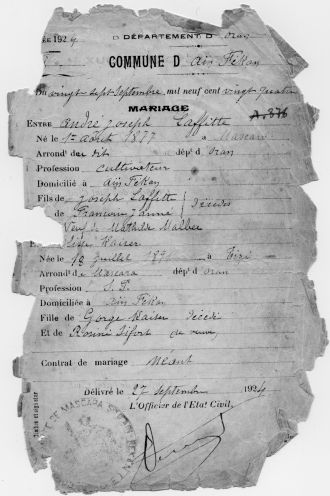 ÉE 1924 DÉPARTEMENT D'Oran
COMMUNE D'Aïn Fékan
Du vingt sept Septembre, mil neuf cent vingt quatre
MARIAGE
ENTRE André Joseph Laffitte
Né le 1er août 1877 à Mascara
Arrond' du dit dép' d'Oran
Profession cultivateur
Domicilié à Aïn Fékan
Fils de Joseph Laffitte
de Françoise Jeanne décédés
Veuf de Mathilde
Kaiser
Née le 18 Juillet à
Arrond' de Mascara dép' d'Oran
Profession S. P.
Domiciliée à Aïn Fékan
Fille de George Kaiser décédé
Et de Rosine sa veuve,
Contrat de mariage Néant
Délivré le 27 Septembre 1924
L'Officier de l'État Civil,
DE MASCARA